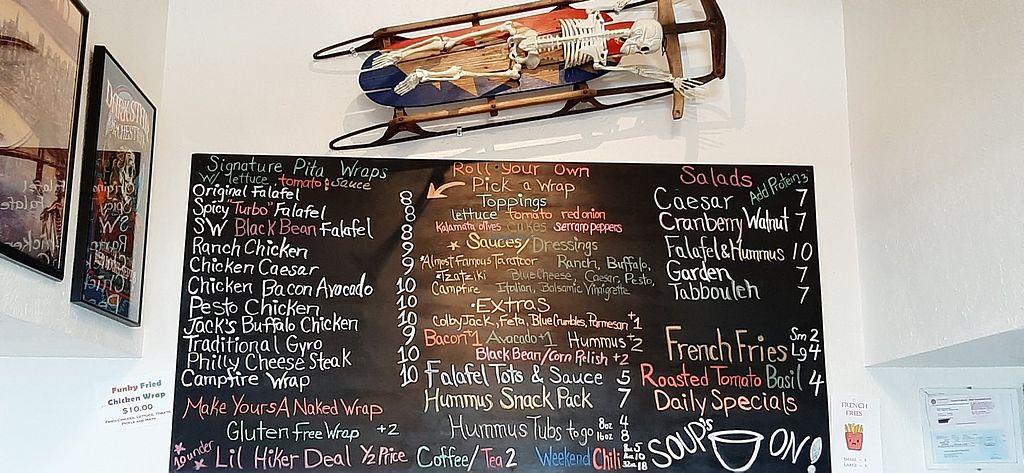 Signature Pita Wraps
w/ lettuce tomato & sauce
Original Falafel 8
Spicy "Turbo" Falafel 8
SW Black Bean Falafel 8
Ranch Chicken 9
Chicken Caesar 9
Chicken Bacon Avocado 10
Pesto Chicken 10
Jack's Buffalo Chicken 10
Traditional Gyro 9
Philly Cheese Steak 10
Campfire Wrap 10
Make Yours A Naked Wrap
Gluten Free Wrap +2
10 under Lil Hiker Deal 1/2 Price
Roll Your Own
Pick a Wrap
Toppings
lettuce tomato red onion
Kalamata olives cukes serrano peppers
Sauces/Dressings
Almost Famous Taratoor Ranch, Buffalo,
Tzatziki Blue Cheese, Caesar, Pesto,
Campfire Italian, Balsamic Vinigrette
Extras
Colby Jack, Feta, Blue Crumbles, Parmesan +1
Bacon +1 Avocado +1 Hummus +2
Black Bean/Corn Relish +2
Falafel Tots & Sauce 5
Hummus Snack Pack 7
Hummus Tubs to go 8oz 4
16oz 8
Coffee/Tea 2 Weekend Chili
Salads Add Protein 3
Caesar 7
Cranberry Walnut 7
Falafel & Hummus 10
Garden 7
Tabbouleh 7
French Fries Sm 2
Lg 4
Roasted Tomato Basil 4
Daily Specials
SOUP's ON!
Funky Fried
Chicken Wrap
$10.00
FRENCH
FRIES